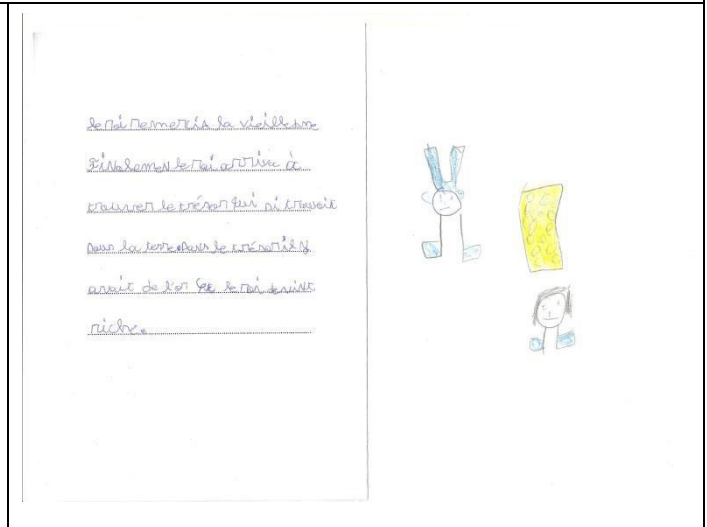 le roi remercia la vieille
Finalemen le roi arrive à
trouver le trésor qui si trouvait
sous la terre. Dans le trésor il y
avait de l'or le roi devint
riche.